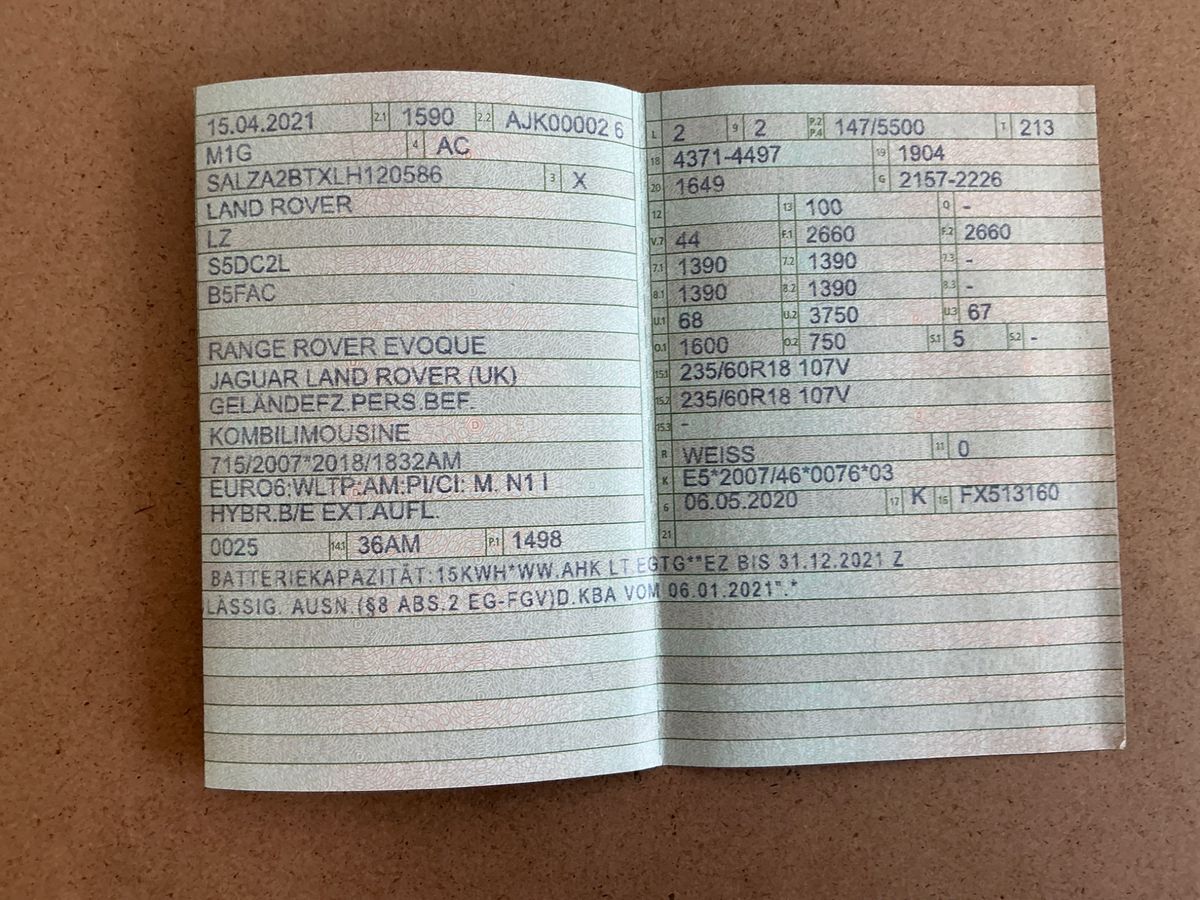 15.04.2021 2.1 1590 2.2 AJK00002 6
M1G 4 AC
SALZA2BTXLH120586 3 X
LAND ROVER
LZ
S5DC2L
B5FAC
RANGE ROVER EVOQUE
JAGUAR LAND ROVER (UK)
GELÄNDEFZ.PERS.BEF.
KOMBILIMOUSINE
715/2007*2018/1832AM
EURO6;WLTP;AM:PI/CI: M. N1 I
HYBR.B/E EXT.AUFL.
0025 14.1 36AM P.1 1498
L 2 9 2 P.2 P.4 147/5500 T 213
18 4371-4497 19 1904
20 1649 G 2157-2226
12 13 100 Q -
V.7 44 F.1 2660 F.2 2660
7.1 1390 7.2 1390 7.3 -
8.1 1390 8.2 1390 8.3 -
U.1 68 U.2 3750 U.3 67
O.1 1600 O.2 750 S.1 5 S.2 -
15.1 235/60R18 107V
15.2 235/60R18 107V
15.3 -
R WEISS 11 0
K E5*2007/46*0076*03
6 06.05.2020 17 K 16 FX513160
21
BATTERIEKAPAZITÄT:15KWH*WW.AHK LT.EGTG**EZ BIS 31.12.2021 Z
LÄSSIG. AUSN.(§8 ABS.2 EG-FGV)D.KBA VOM 06.01.2021".*